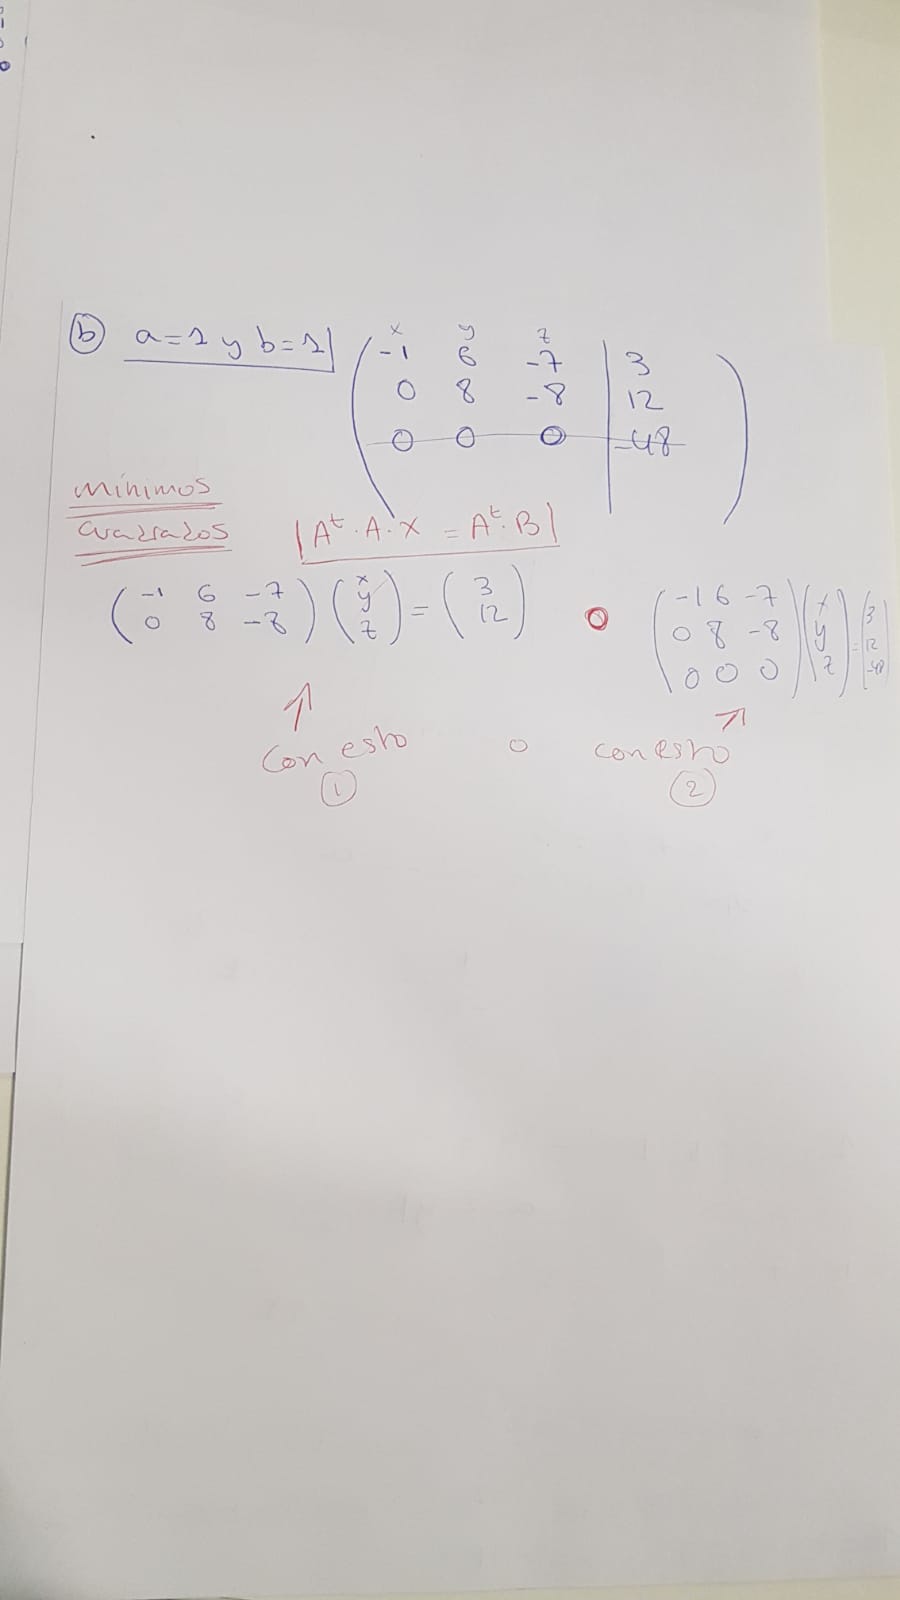 b a=1 y b=1
x y z
-1 6 -7 | 3
0 8 -8 | 12
0 0 0 | -48
mínimos
cuadrados
A^t · A · X = A^t · B
(-1 6 -7) (x) (3)
(0 8 -8) (y) = (12)
(z)
o
(-1 6 -7) (x) (3)
(0 8 -8) (y) = (12)
(0 0 0) (z) (-48)
Con esto o con esto
1 2